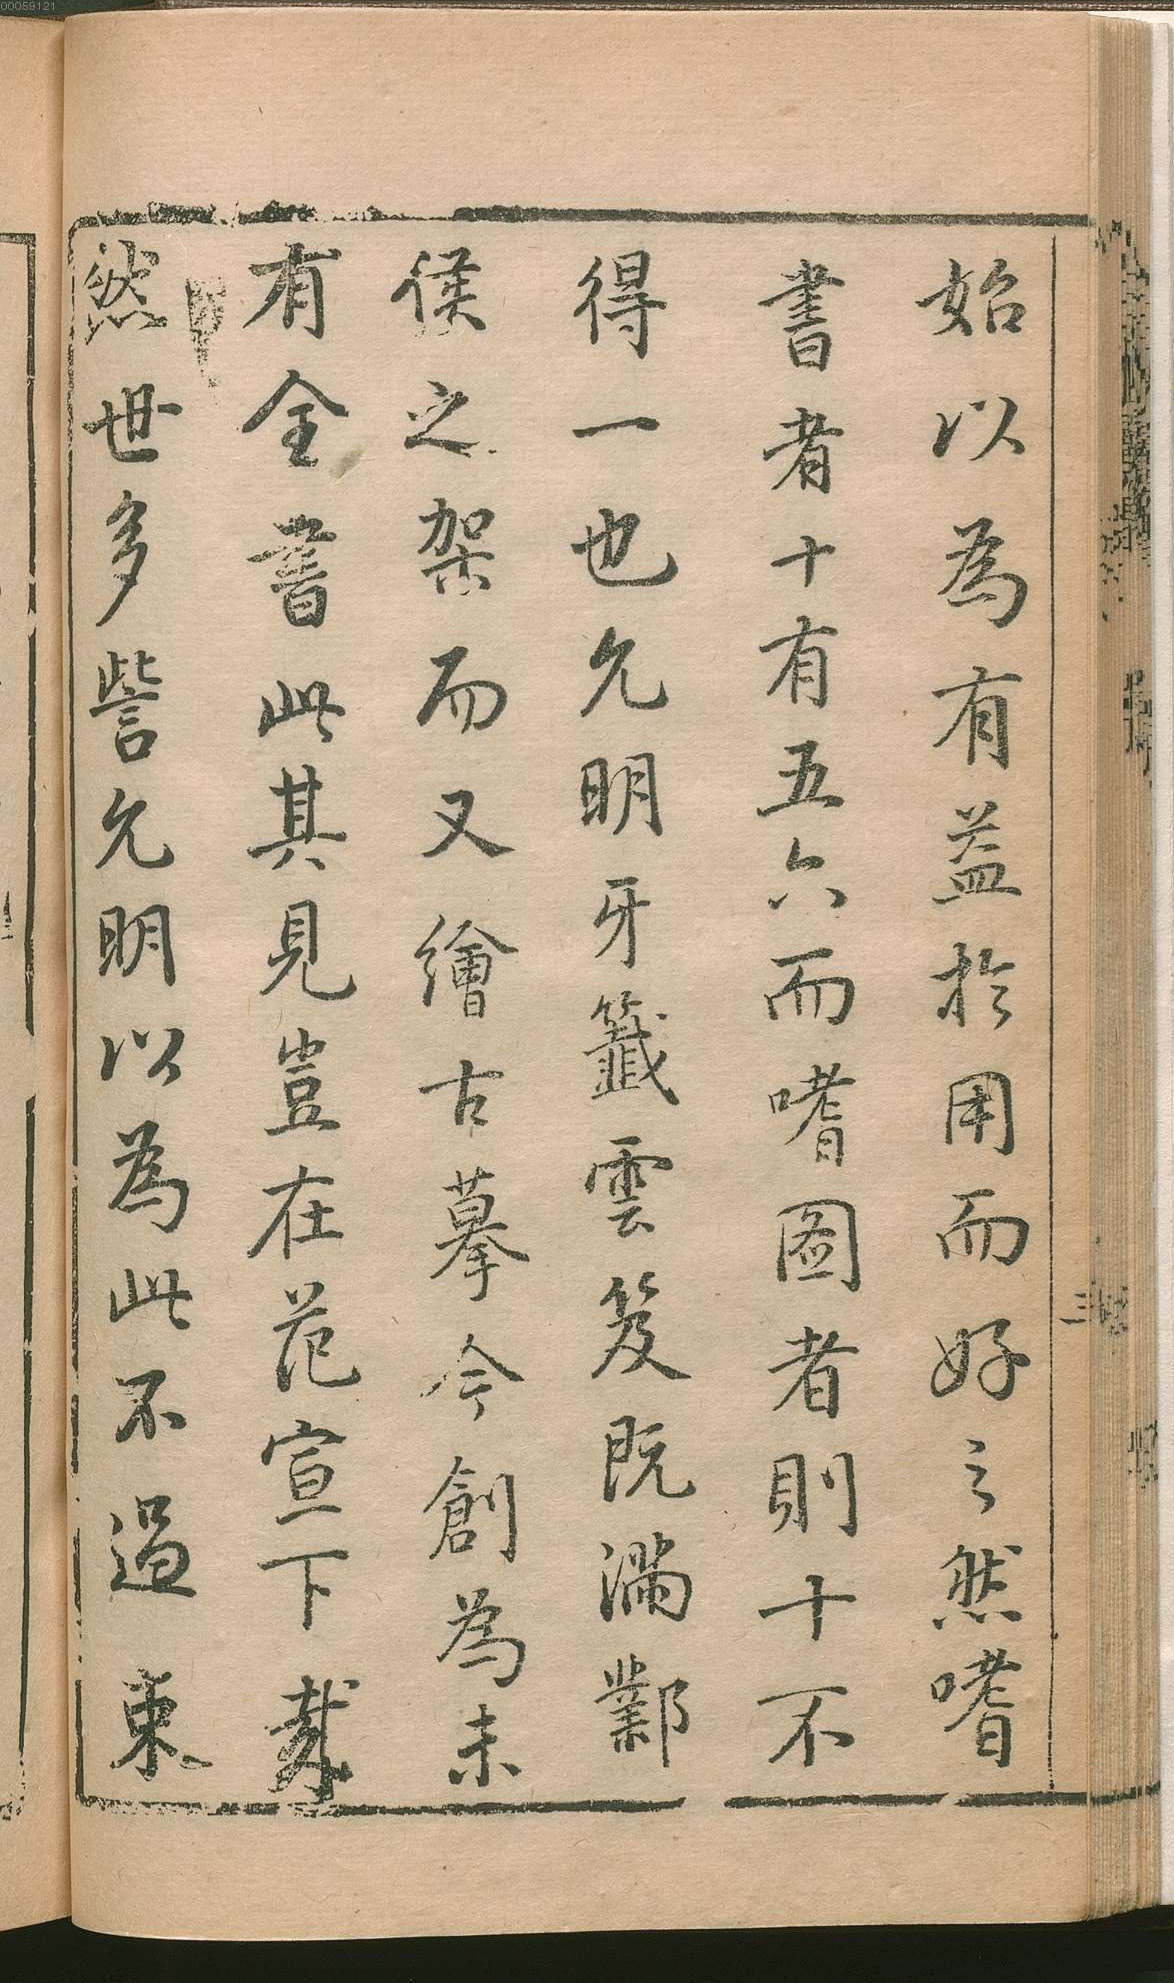 始以為有益於用而好之然嗜
書者十有五六而嗜圖者則十不
得一也允明牙籤雲笈既滿鄴
侯之架而又繪古摹今創為未
有全書此其見豈在范宣下哉
然世多訾允明以為此不過東
三
00059121